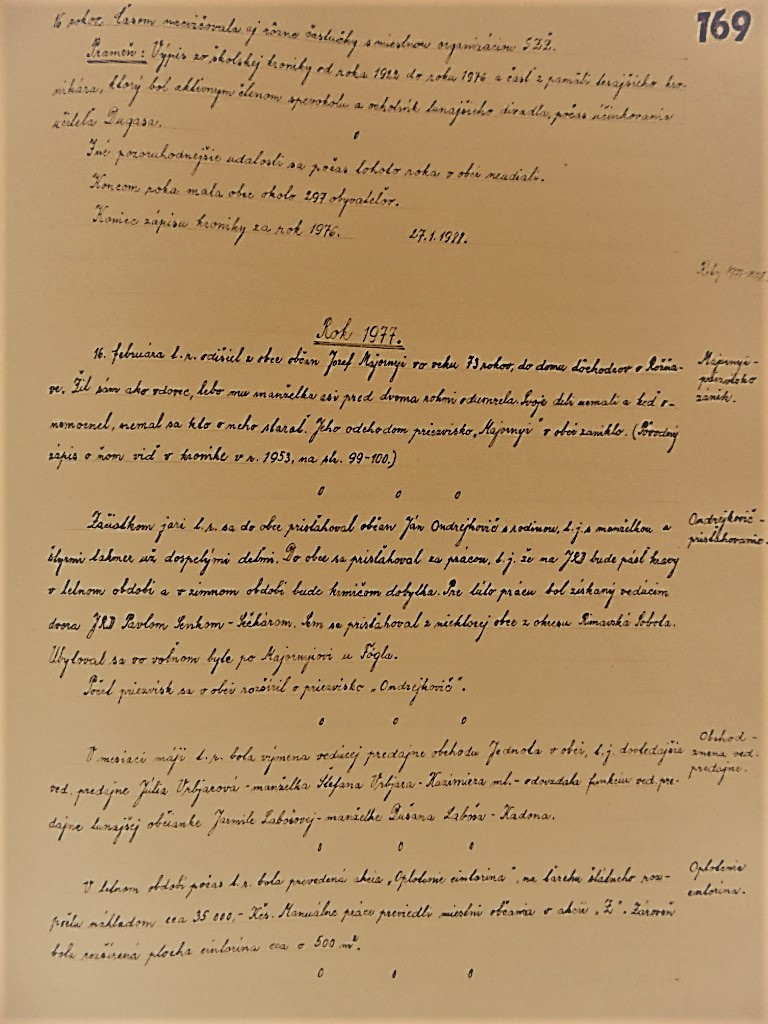 169
16 rokov. Časom nacvičovala aj rôzne častušky s miestnou organizáciou SZŽ.
Prameň: Výpis zo školskej kroniky od roku 1922 do roku 1976 a časť z pamäti terajšieho kro-
nikára, ktorý bol aktívnym členom spevokolu a ochotník tunajšieho divadla, počas účinkovania
učiteľa Dugasa.
Iné pozoruhodnejšie udalosti sa počas tohoto roka v obci neudiali.
Koncom roka mala obec okolo 297 obyvateľov.
Koniec zápisu kroniky za rok 1976. 27.1.1981.
Rok 1977.
16. februára t.r. odišiel z obce občan Jozef Májornyi vo veku 73 rokov, do domu dôchodcov v Rožňa-
ve. Žil sám ako vdovec, lebo mu manželka asi pred dvoma rokmi odumrela. Svoje deti nemali a keď o-
nemocnel, nemal sa kto o neho starať. Jeho odchodom priezvisko „Májornyi" v obci zaniklo. (Pôvodný
zápis o ňom viď v kronike v r. 1953, na str. 99-100.)
Májornyi -
priezvisko
zánik.
0 0 0
Začiatkom jari t.r. sa do obce prisťahoval občan Ján Ondrejkovič s rodinou, t.j. s manželkou a
štyrmi takmer už dospelými deťmi. Do obce sa prisťahoval za prácou, t.j. že na JRD bude pásť kravy
v letnom období a v zimnom období bude kŕmičom dobytka. Pre túto prácu bol získaný vedúcim
dvora JRD Pavlom Senkom - Sečkárom. Sem sa prisťahoval z niektorej obce z okresu Rimavská Sobota.
Ubytoval sa vo voľnom byte po Majornyiovi u Fógla.
Počet priezvisk sa v obci rozšíril o priezvisko „Ondrejkovič".
Ondrejkovič -
prisťahovanie.
0 0 0
V mesiaci máji t.r. bola výmena vedúcej predajne obchodu Jednota v obci, t.j. doterajšia
ved. predajne Júlia Vrbjarová - manželka Štefana Vrbjara - Kazimiera ml. - odovzdala funkciu ved. pre-
dajne tunajšej občianke Jarmile Labošovej - manželke Dušana Laboša - Kadona.
Obchod -
zmena ved.
predajne.
0 0 0
V letnom období počas t.r. bola prevedená akcia „Oplotenie cintorína", na ťarchu štátneho roz-
počtu nákladom cca 35 000,- Kčs. Manuálne práce previedli miestni občania v akcii „Z". Zároveň
bola rozšírená plocha cintorína cca o 500 m².
Oplotenie
cintorína.
0 0 0